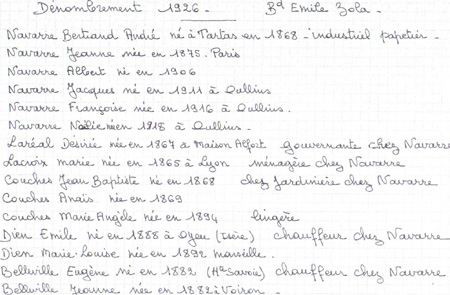 Dénombrement 1926. Bd Emile Zola.
Navarre Bertrand André né à Tartas en 1868 - industriel papetier -
Navarre Jeanne née en 1875. Paris
Navarre Albert né en 1906
Navarre Jacques né en 1911 à Oullins
Navarre Françoise née en 1916 à Oullins.
Navarre née en 1918 à Oullins.
Laréal Désirée née en 1867 à Maison Alfort gouvernante chez Navarre
Lacroix marie née en 1865 à Lyon ménagère chez Navarre
Couches Jean Baptiste né en 1868 chez Navarre
Couches Anaïs née en 1869
Couches Marie Angèle née en 1894 lingère
Dien Emile né en 1888 à (Isère) chauffeur chez Navarre
Dien Marie-Louise née en 1892 marseille.
Bellville Eugène né en 1882 (Hte Savoie) chauffeur chez Navarre
Bellville Jeanne née en 1882 à Voiron -